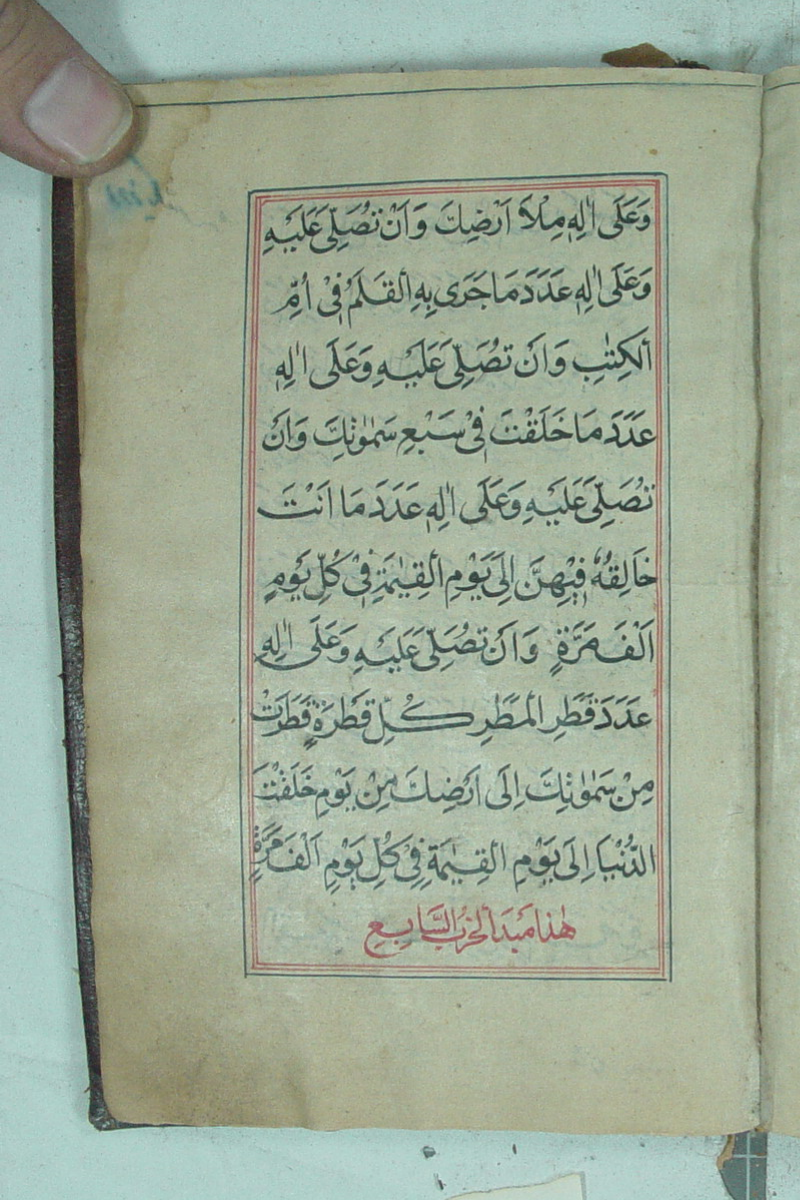 وَعَلَى اٰلِهٖ مِلْأَ اَرْضِكَ وَاَنْ تُصَلِّىَ عَلَيْهِ
وَعَلَى اٰلِهٖ عَدَدَ مَا جَرَى بِهِ الْقَلَمُ فِىْ اُمِّ
الْكِتٰبِ وَاَنْ تُصَلِّىَ عَلَيْهِ وَعَلَى اٰلِهٖ
عَدَدَ مَا خَلَقْتَ فِىْ سَبْعِ سَمٰوٰتِكَ وَاَنْ
تُصَلِّىَ عَلَيْهِ وَعَلَى اٰلِهٖ عَدَدَ مَا اَنْتَ
خَالِقُهٗ فِيْهِنَّ اِلَى يَوْمِ الْقِيٰمَةِ فِىْ كُلِّ يَوْمٍ
اَلْفَ مَرَّةٍ وَاَنْ تُصَلِّىَ عَلَيْهِ وَعَلَى اٰلِهٖ
عَدَدَ قَطْرِ الْمَطَرِ كُلِّ قَطْرَةٍ قَطَرَتْ
مِنْ سَمٰوٰتِكَ اِلَى اَرْضِكَ مِنْ يَوْمِ خَلَقْتَ
الدُّنْيَا اِلَى يَوْمِ الْقِيٰمَةِ فِىْ كُلِّ يَوْمٍ اَلْفَ مَرَّةٍ
هٰذا مبدَأ الحزبُ السَّابِعِ